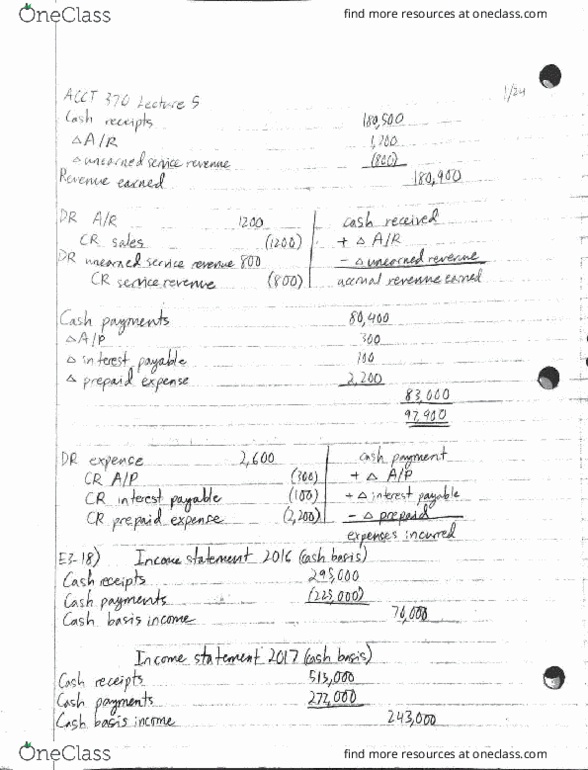 OneClass find more resources at oneclass.com
ACCT 370 Lecture 5 1/24
Cash receipts 180,500
△A/R 1,200
△ unearned service revenue (800)
Revenue earned 180,900
DR A/R 1200 cash received
CR sales (1200) + △ A/R
DR unearned service revenue 800 - △ unearned revenue
CR service revenue (800) accrual revenue earned
Cash payments 80,400
△A/P 300
△ interest payable 100
△ prepaid expense 2,200
83,000
97,900
DR expense 2,600 cash payment
CR A/P (300) + △ A/P
CR interest payable (100) + △ interest payable
CR prepaid expense (2,200) - △ prepaid
expenses incurred
E3-18) Income statement 2016 (cash basis)
Cash receipts 295,000
Cash payments (225,000)
Cash basis income 70,000
Income statement 2017 (cash basis)
Cash receipts 515,000
Cash payments 272,000
Cash basis income 243,000
OneClass find more resources at oneclass.com